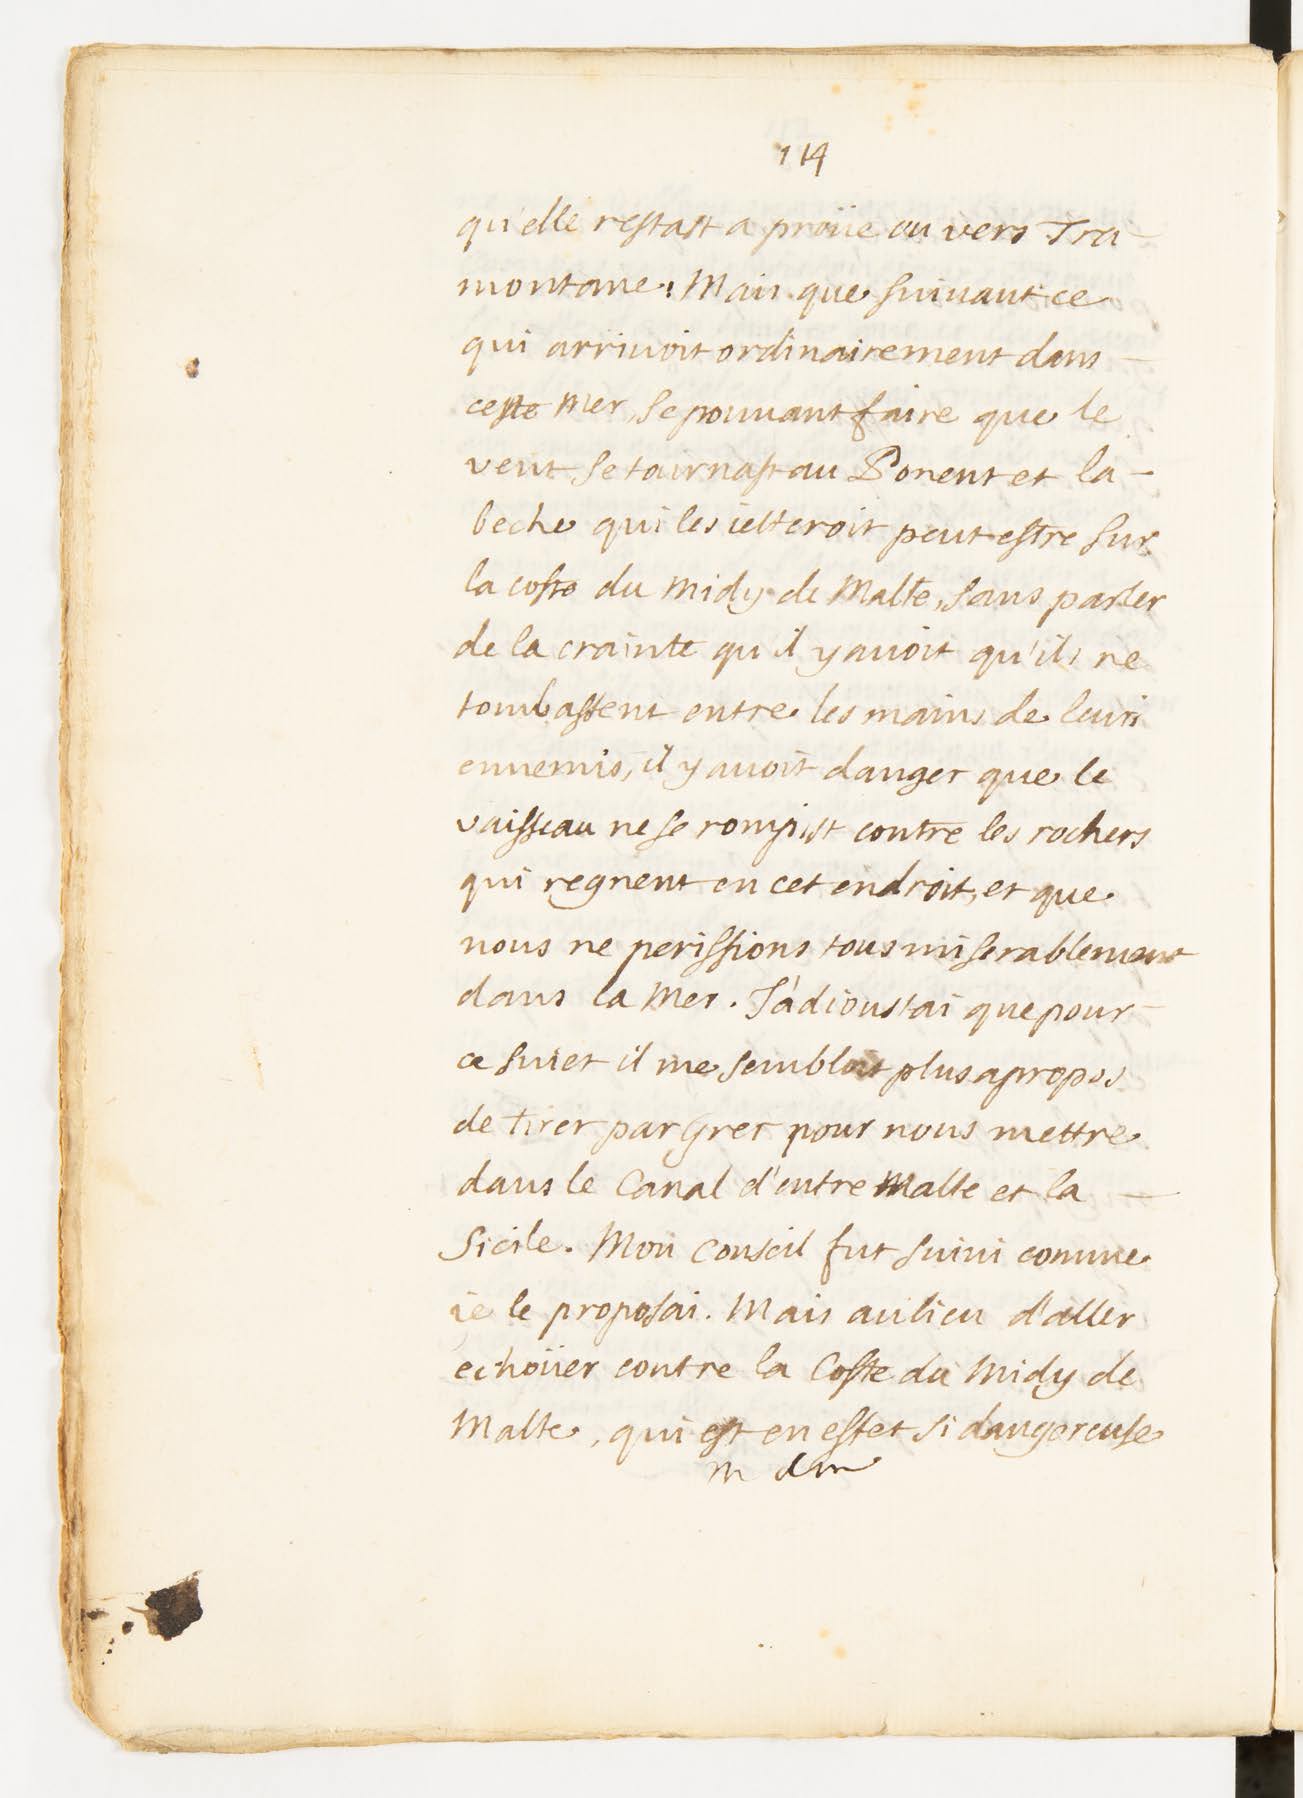 114
qu'elle restast a proüe ou vers Tra-
montane; Mais que suiuant ce
qui arriuoit ordinairement dans
ceste Mer, se pouuant faire que le
vent se tournast au Ponent et la-
beche qui les ietteroit peut estre sur
la coste du Midy de Malte, sans parler
de la crainte qu'il y auoit qu'ils ne
tombassent entre les mains de leurs
ennemis, il y auoit danger que le
vaisseau ne se rompist contre les rochers
qui regnent en cet endroit, et que
nous ne perissions tous miserablement
dans la Mer. J'adioustai que pour
ce suiet il me sembloit plus apropos
de tirer par Grec pour nous mettre
dans le Canal d'entre Malte et la
Sicile. Mon Conseil fut suiui comme
ie le proposai. Mais au lieu d'aller
echoüer contre la Coste du Midy de
Malte, qui est en effet si dangereuse